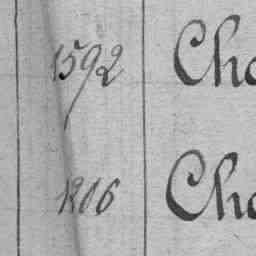 1592 Cha
1206 Cha